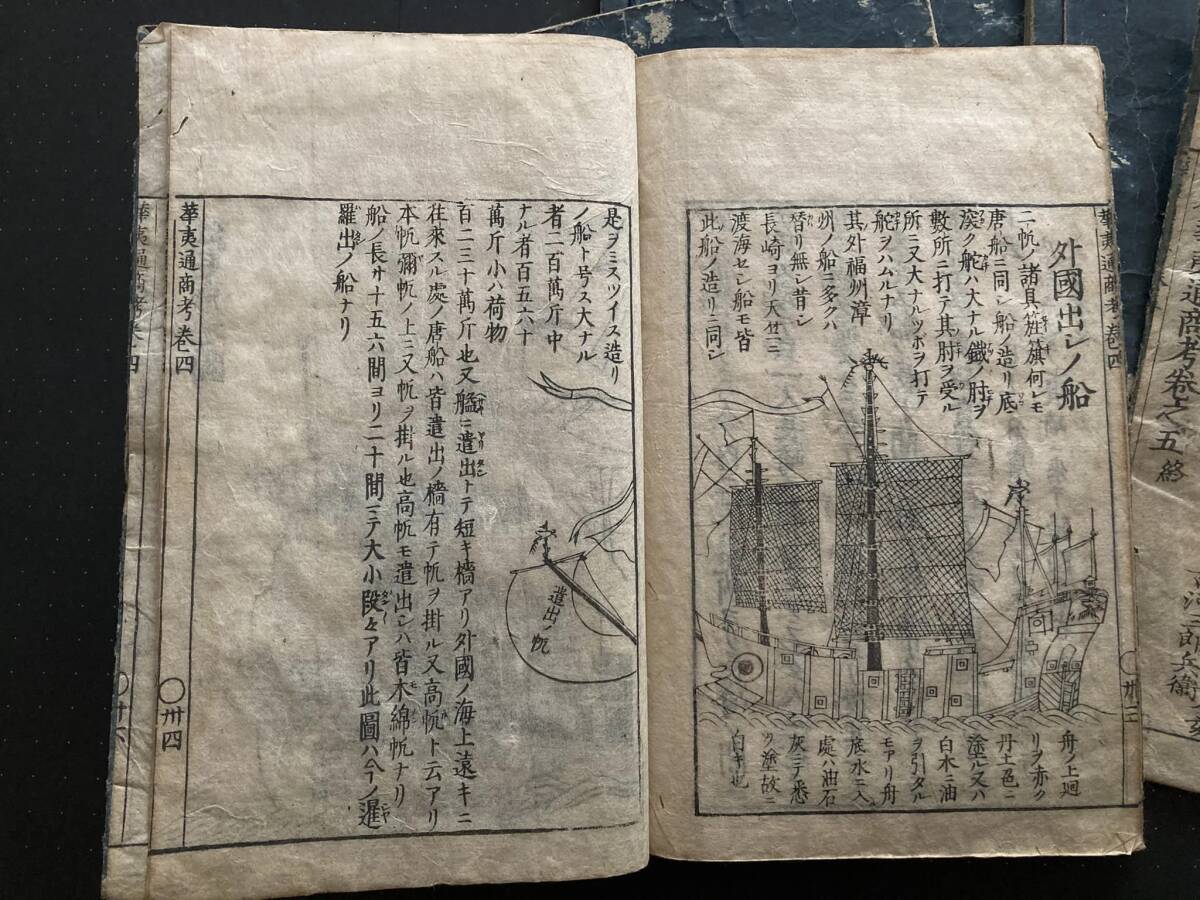 華夷通商考卷四
外國出シノ船
二帆ノ諸具旌籏何レモ
唐船ニ同シ船ノ造リ底
深ク舵ハ大ナル鐵ノ肘ヲ
數所ニ打テ其肘ヲ受ル
所ニ又大ナルツボヲ打テ
舵ヲハムルナリ
其外福州漳
州ノ船ニ多クハ
替リ無シ昔シ
長崎ヨリ天竺ニ
渡海セシ船モ皆
此船ノ造リニ同シ
舟ノ上廻
リヲ赤ク
丹土色ニ
塗ル又ハ
白木ニ油
ヲ引タル
モアリ舟
底水ニ入
處ハ油石
灰ニテ悉
ク塗故ニ
白キ也
卅三
是ヲミスツイス造リ
ノ船ト号ス大ナル
者二百萬斤中
ナル者百五六十
萬斤小ハ荷物
百二三十萬斤也又艦ニ遣出トテ短キ檣アリ外國ノ海上遠キニ
往來スル處ノ唐船ハ皆遣出ノ檣有テ帆ヲ掛ル又高帆ト云アリ
本帆彌帆ノ上ニ又帆ヲ掛ル也高帆モ遣出シハ皆木綿帆ナリ
船ノ長サ十五六間ヨリ二十間ニテ大小段々アリ此圖ハ今ノ暹
羅出ノ船ナリ
遣出シ帆
華夷通商考卷四
卅四
華夷通商考卷四
卄六
通商考卷之五終